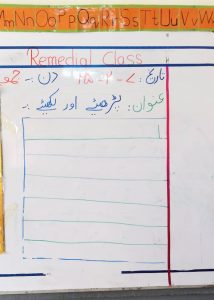 MmNnOoPpQqRrSsTtUuVvWw
Remedial Class
تاریخ: دن :-
عنوان: پڑھیئے اور لکھیئے :-
ا